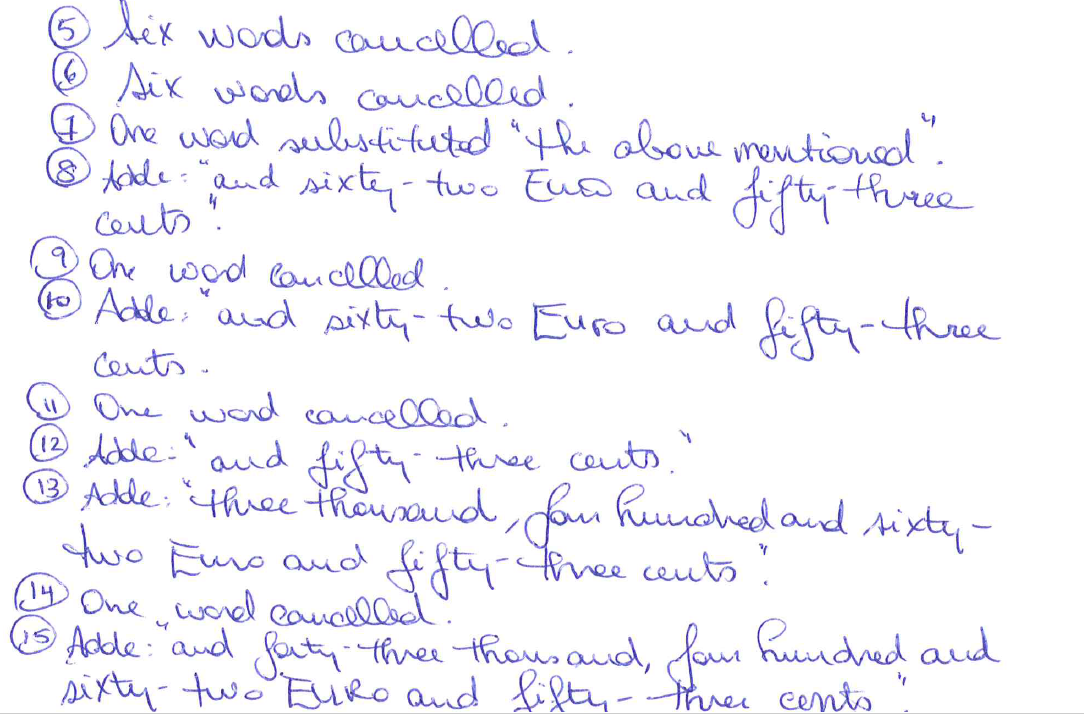 ⑤ Six words cancelled.
⑥ Six words cancelled.
⑦ One word substituted "the above mentioned".
⑧ Adde: "and sixty-two Euro and fifty-three
cents".
⑨ One word cancelled.
⑩ Adde: "and sixty-two Euro and fifty-three
cents.
⑪ One word cancelled.
⑫ Adde: "and fifty-three cents."
⑬ Adde: "three thousand, four hundred and sixty-
two Euro and fifty-three cents".
⑭ One word cancelled.
⑮ Adde: "and forty-three thousand, four hundred and
sixty-two EURO and fifty-three cents".